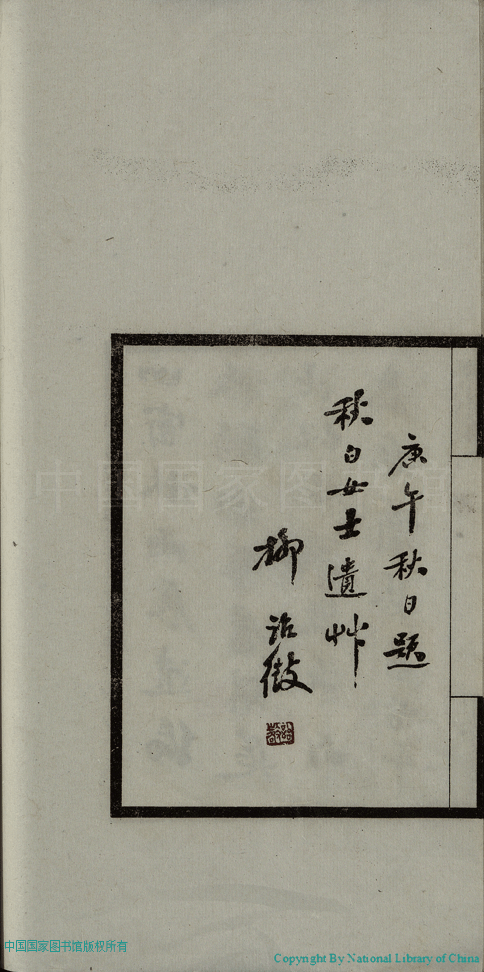 庚午秋日題
秋白女士遺艸
柳詒徵
中国国家图书馆
中国国家图书馆版权所有
Copyright By National Library of China